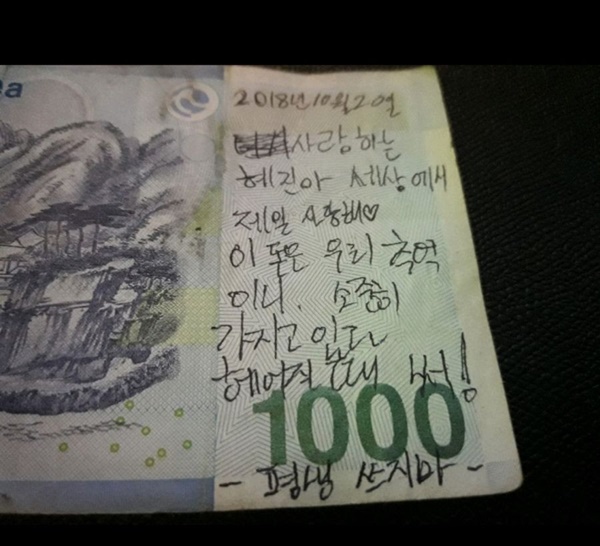 ea
2018년10월20일
사랑하는
혜진아 세상에서
제일 사랑해♡
이 돈은 우리 추억
이니. 소중히
가지고 있다
헤어질 때 써!
1000
- 평생 쓰지마 -